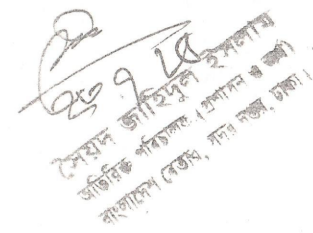 ২৩/৭/১৫
সৈয়দ জাহিদুল ইসলাম
অতিরিক্ত পরিচালক (প্রশাসন ও অর্থ)
বাংলাদেশ বেতার, সদর দপ্তর, ঢাকা।